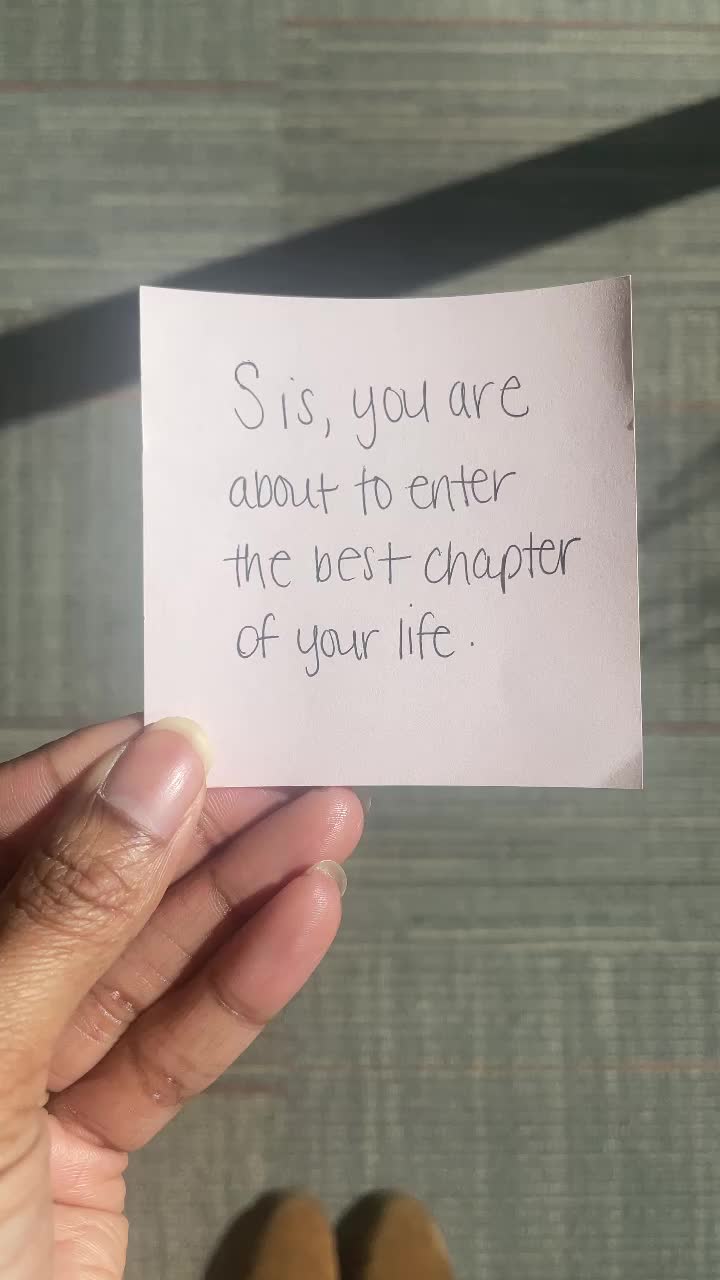 Sis, you are
about to enter
the best chapter
of your life.